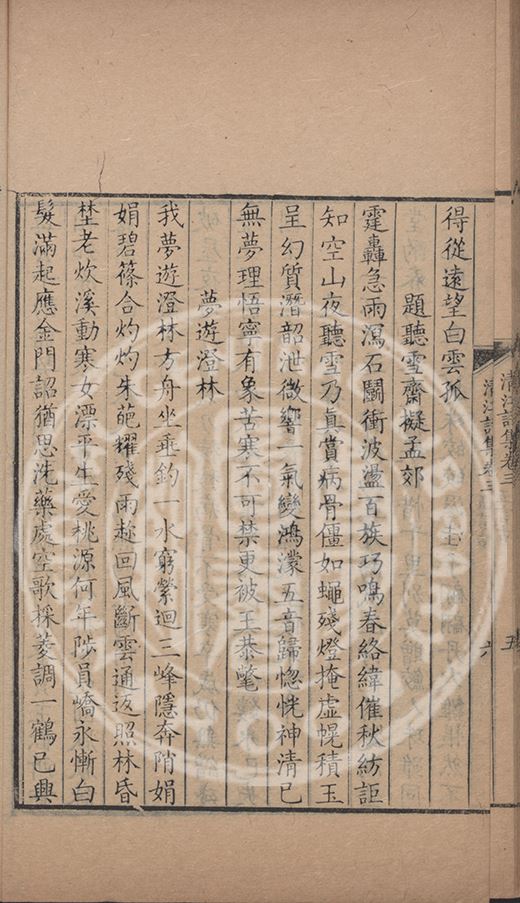 得從遠望白雲孤
題聽雪齋擬孟郊
霆轟急雨瀉石鬬衝波盪百族巧鳴春絡緯催秋紡詎
知空山夜聽雪乃真賞病骨僵如蠅殘燈掩虛幌積玉
呈幻質潛韶泄微響一氣變鴻濛五音歸惚恍神清已
無夢理悟寧有象苦寒不可禁更被王恭氅
夢遊澄林
我夢遊澄林方舟坐垂釣一水窮縈迴三峰隱奔陗娟
娟碧篠合灼灼朱葩耀殘雨趂回風斷雲通返照林昏
埜老炊溪動寒女漂平生愛桃源何年陟員嶠永慚白
髮滿起應金門詔猶思洗藥處空歌採菱調一鶴已興
清江詩集卷三
六
清江詩集卷三
五